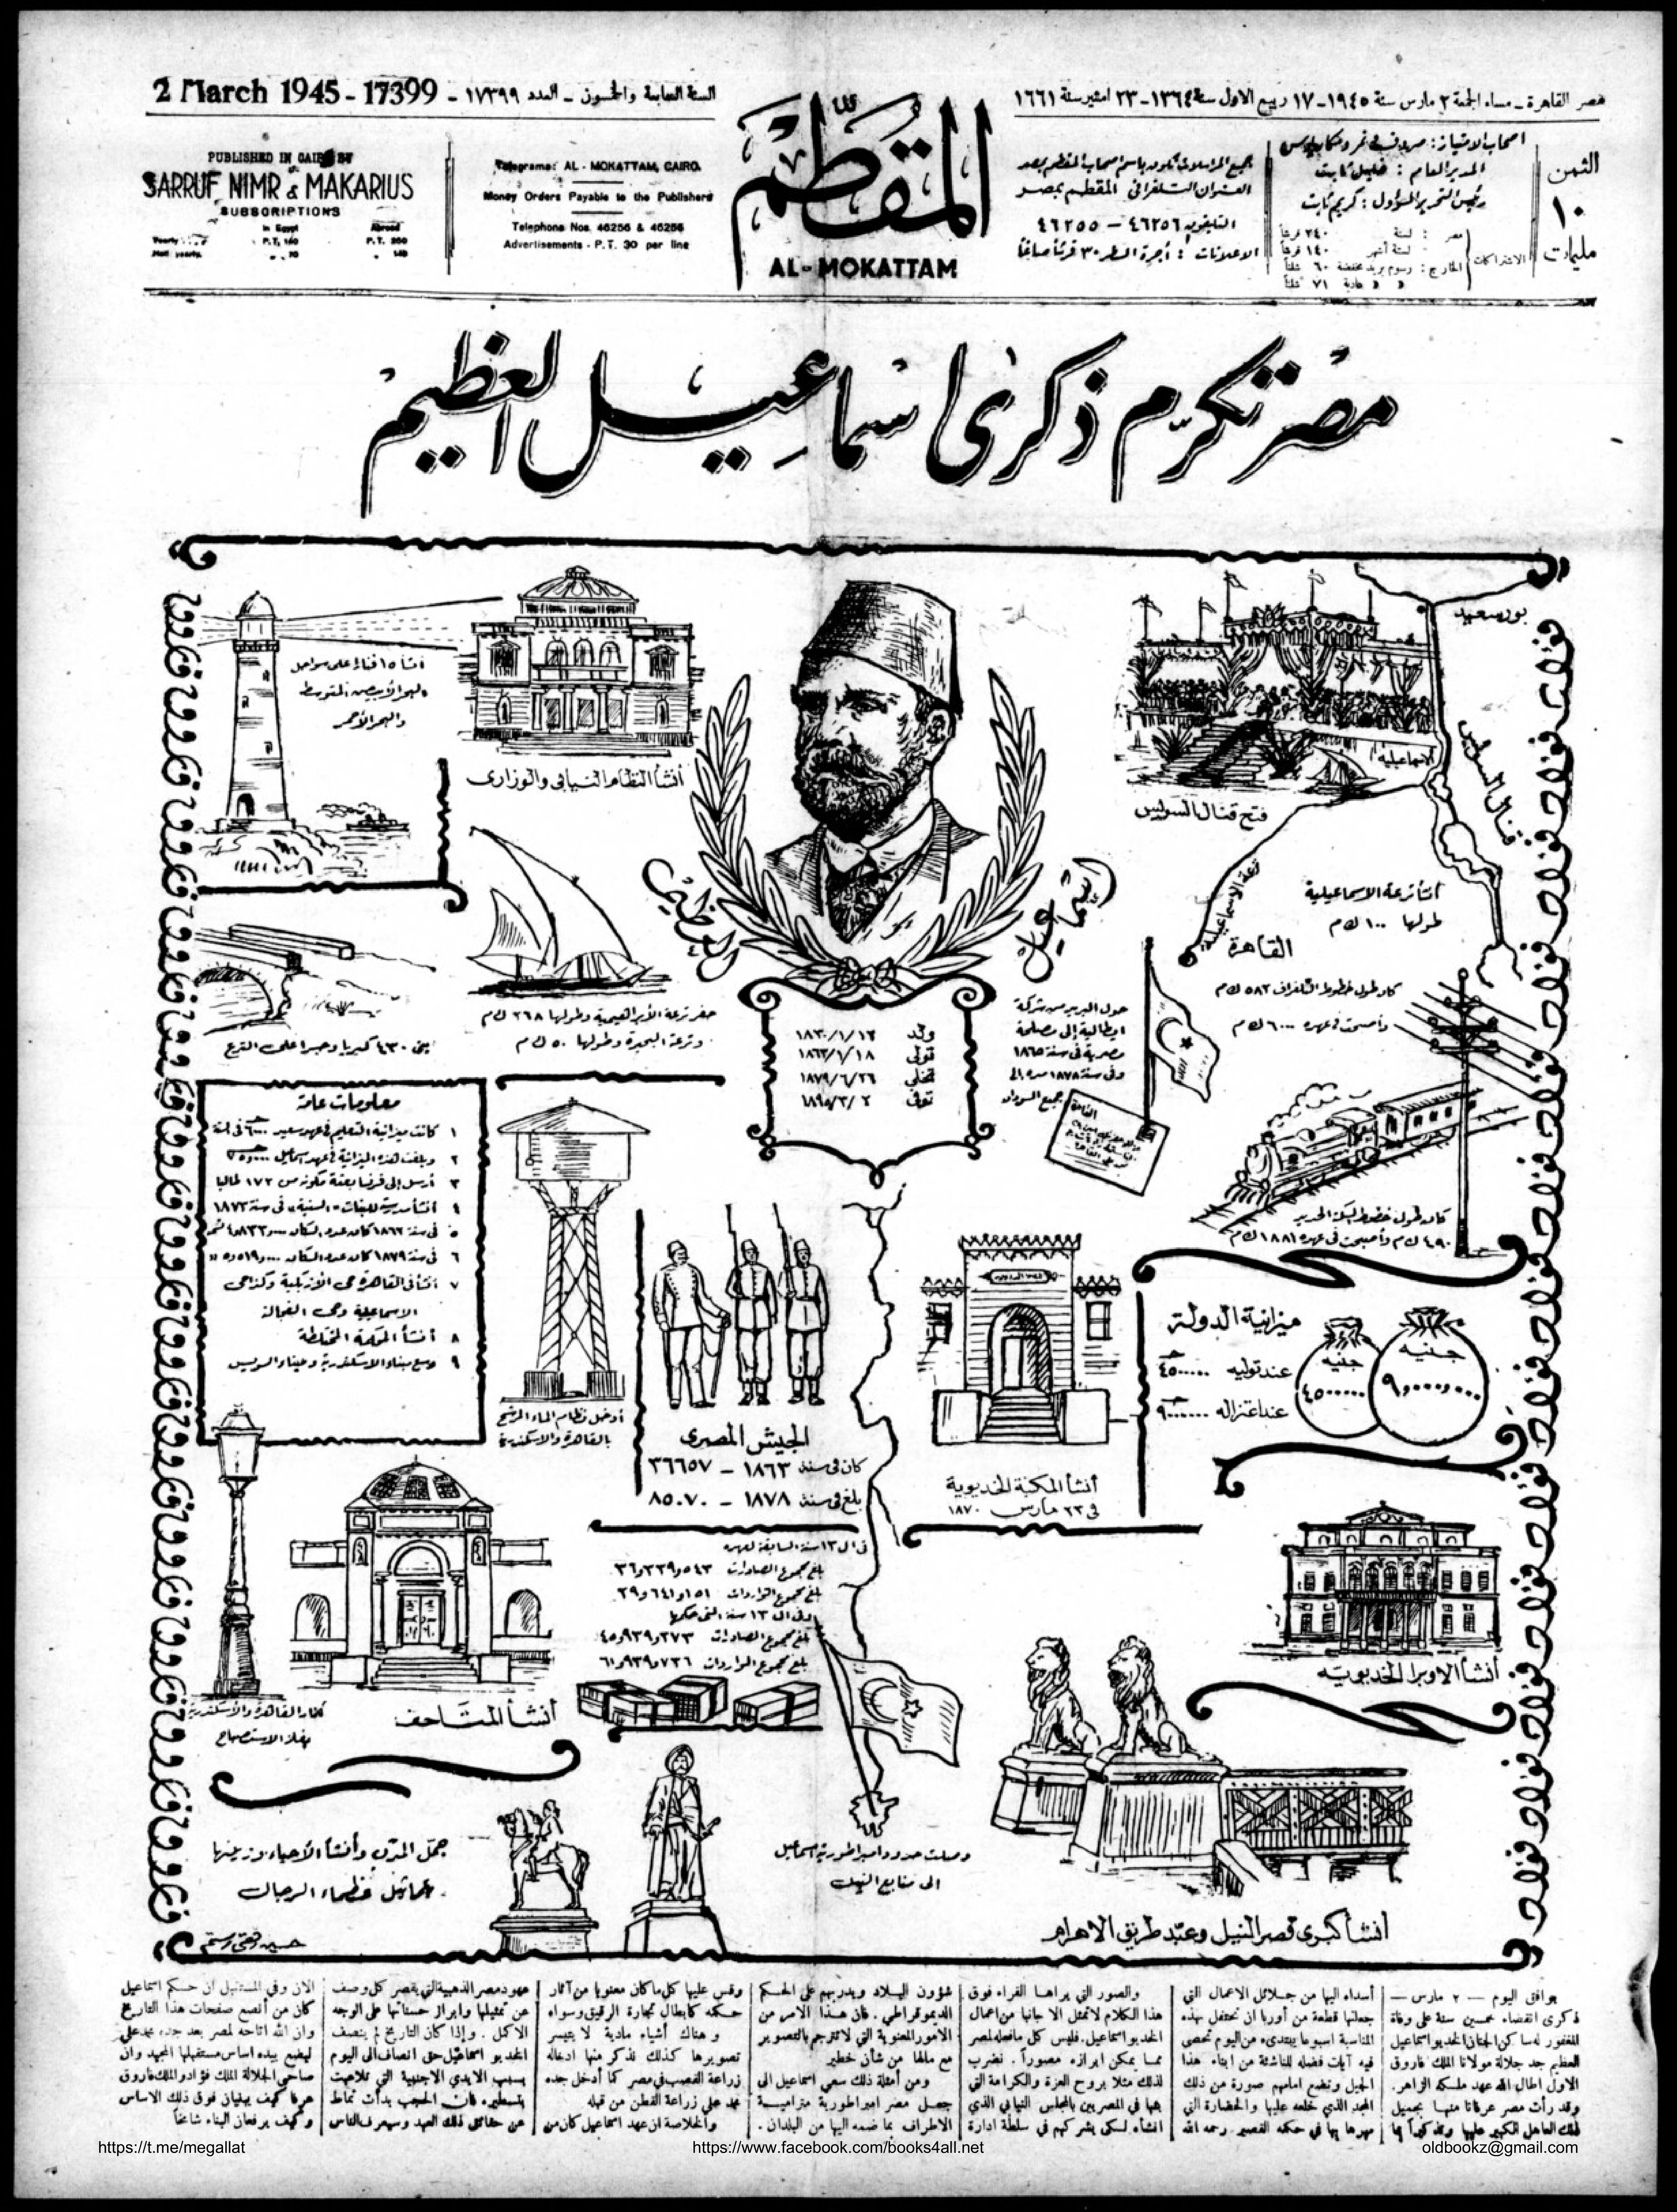 2 March 1945 - 17399 - السنة السابعة والخمسون - العدد ١٧٣٩٩
مصر القاهرة - مساء الجمعة ٢ مارس سنة ١٩٤٥ - ١٧ ربيع الاول سنة ١٣٦٤ - ٢٣ امشير سنة ١٦٦١
PUBLISHED IN CAIRO BY
SARRUF, NIMR & MAKARIUS
SUBSCRIPTIONS
In Egypt Abroad
Yearly P.T. P.T.
Half yearly
Telegrams: AL - MOKATTAM, CAIRO.
Money Orders Payable to the Publishers
Telephone Nos. 46256 & 46255
Advertisements - P.T. 30 per line
المقطم
AL-MOKATTAM
جميع المراسلات تكون باسم اصحاب المقطم بمصر
العنوان التلغرافي المقطم بمصر
التليفون ٤٦٢٥٦ - ٤٦٢٥٥
الاعلانات : أجرة السطر ٣٠ قرشا صاغا
اصحاب الامتياز : صروف ونمر ومكاريوس
المدير العام : خليل ثابت
رئيس التحرير المسؤول : كريم ثابت
الاشتراكات
الثمن
١٠
مليمات
مصر تكرم ذكرى اسماعيل العظيم
بورسعيد
قنال السويس
الاسماعيلية
فتح قنال السويس
ترعة الاسماعيلية
أنشأ ترعة الاسماعيلية
طولها ١٠٠ ك م
القاهرة
أنشأ ١٥ فنارا على سواحل
البحر الأبيض المتوسط
والبحر الأحمر
أنشأ النظام النيابى والوزارى
اسماعيل العظيم
ولد
تولى
تخلى ١٨٧٩/٦/٢٦
توفى ١٨٩٥/٣/٢
كان طول خطوط التلغراف ٥٨٢ ك م
وأصبحت فى عهده ٦٠٠٠ ك م
حول البريد من شركة
ايطالية إلى مصلحة
مصرية فى سنة ١٨٦٥
جميع السودان
حفر ترعة الأبراهيمية وطولها ٢٦٨ ك م
وترعة البحيرة وطولها ٥٠ ك م
بنى ٤٣٠ كبريا وجسرا على الترع
معلومات عامة
١ كانت ميزانية التعليم فى عهد سعيد
٢ وبلغت هذه الميزانية فى عهد اسماعيل
٣ أرسل إلى فرنسا بعثة مكونة من ١٧٢ طالبا
٤ أنشأ مدرسة للبنات « السنية » فى سنة ١٨٧٣
٥ فى سنة ١٨٦٣ كان عدد السكان
٦ فى سنة ١٨٧٩ كان عدد السكان
٧ أنشأ فى القاهرة حى الأزبكية وكذا حى
الاسماعيلية وحى الفجالة
٨ أنشأ المحكمة المختلطة
٩ وسع ميناء الاسكندرية وميناء السويس
أدخل نظام الماء المرشح
بالقاهرة والاسكندرية
الجيش المصرى
كان فى سنة ١٨٦٣ - ٣٦٦٥٧
بلغ فى سنة ١٨٧٨ - ٨٥٠٧٠
أنشأ المكتبة الخديوية
فى ٢٣ مارس ١٨٧٠
كان طول خطوط السكة الحديد
٤٩٠ ك م وأصبحت فى عهده ١٨٨١ ك م
ميزانية الدولة
عند توليه
عند اعتزاله
جنيه
جنيه
فى ال ١٣ سنة السابقة لعهده
بلغ مجموع الصادرات ٣٦٫٣٣٩٫٥٤٣
بلغ مجموع الواردات ٢٩٫٦٤١٫١٥١
وفى ال ١٣ سنة التى حكمها
بلغ مجموع الصادرات ٤٥٫٩٣٩٫٢٧٣
بلغ مجموع الواردات ٦١٫٩٣٩٫٧٣٦
أنار القاهرة والاسكندرية
بغاز الاستصباح
أنشأ المتاحف
أنشأ الاوبرا الخديوية
جمّل المدن وأنشأ الأحياء وزينها
بتماثيل عظماء الرجال
وصلت حدود امبراطورية اسماعيل
الى منابع النيل
أنشأ كبرى قصر النيل وعبّد طريق الاهرام
يوافق اليوم - ٢ مارس -
ذكرى انقضاء خمسين سنة على وفاة
المغفور له ساكن الجنان الخديو اسماعيل
العظيم جد جلالة مولانا الملك فاروق
الاول اطال الله عهد ملكه الزاهر.
وقد رأت مصر عرفانا منها بجميل
ذلك العاهل الكبير عليها وتذكيرا بما
أسداه اليها من جلائل الاعمال التي
جعلتها قطعة من أوربا ان تحتفل بهذه
المناسبة اسبوعا يبتدىء من اليوم تحصى
فيه آيات فضله للناشئة من ابناء هذا
الجيل وتضع امامهم صورة من ذلك
المجد الذي خلعه عليها والحضارة التي
مهرها بها في حكمه القصير. رحمه الله
والصور التي يراها القراء فوق
هذا الكلام لا تمثل الا جانبا من اعمال
الخديو اسماعيل. فليس كل ما فعله لمصر
مما يمكن ابرازه مصوراً. نضرب
لذلك مثلا بروح العزة والكرامة التي
بثها في المصريين بالمجلس النيابي الذي
انشأه لكي يشركهم في سلطة ادارة
شؤون البلاد ويدربهم على الحكم
الديموقراطي. فان هذا الامر من
الامور المعنوية التي لا تترجم بالتصوير
مع مالها من شأن خطير
ومن أمثلة ذلك سعي اسماعيل الى
جعل مصر امبراطورية مترامية
الاطراف بما ضمه اليها من البلدان.
وقس عليها كل ما كان معنويا من آثار
حكمه كابطال تجارة الرقيق وسواه
وهناك أشياء مادية لا يتيسر
تصويرها كذلك نذكر منها ادخاله
زراعة القصب في مصر كما أدخل جده
محمد علي زراعة القطن من قبله
والخلاصة ان عهد اسماعيل كان من
عهود مصر الذهبية التي يقصر كل وصف
عن تمثيلها وابراز حسناتها على الوجه
الاكمل. واذا كان التاريخ لم ينصف
الخديو اسماعيل حق انصاف الى اليوم
بسبب الايدي الاجنبية التي تلاعبت
بتسطيره فان الحجب بدأت تماط
عن حقائق ذلك العهد وسيعرف الناس
الآن وفي المستقبل ان حكم اسماعيل
كان من أنصع صفحات هذا التاريخ
وان الله اتاحه لمصر بعد جده محمد علي
ليضع بيده اساس مستقبلها المجيد وان
صاحبي الجلالة الملك فؤاد والملك فاروق
عرفا كيف يبنيان فوق ذلك الاساس
وكيف يرفعان البناء شامخا
https://t.me/megallat
https://www.facebook.com/books4all.net
oldbookz@gmail.com